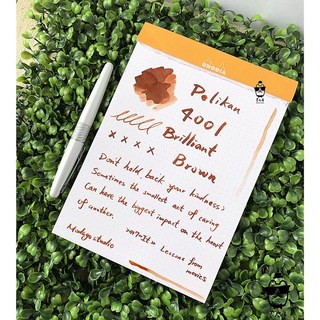 RHODIA
Pelikan
4001
Brilliant
Brown
× × × ×
Don't hold back your kindness:
Sometimes the smallest act of caring
Can have the biggest impact on the heart
of another.
Lessons from
movies